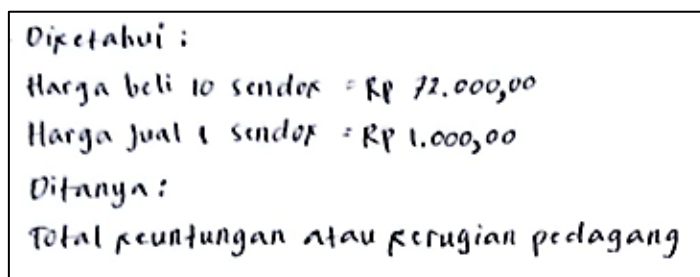 Diketahui :
Harga beli 10 sendok = Rp 72.000,00
Harga Jual 1 sendok = Rp 1.000,00
Ditanya :
Total keuntungan atau kerugian pedagang